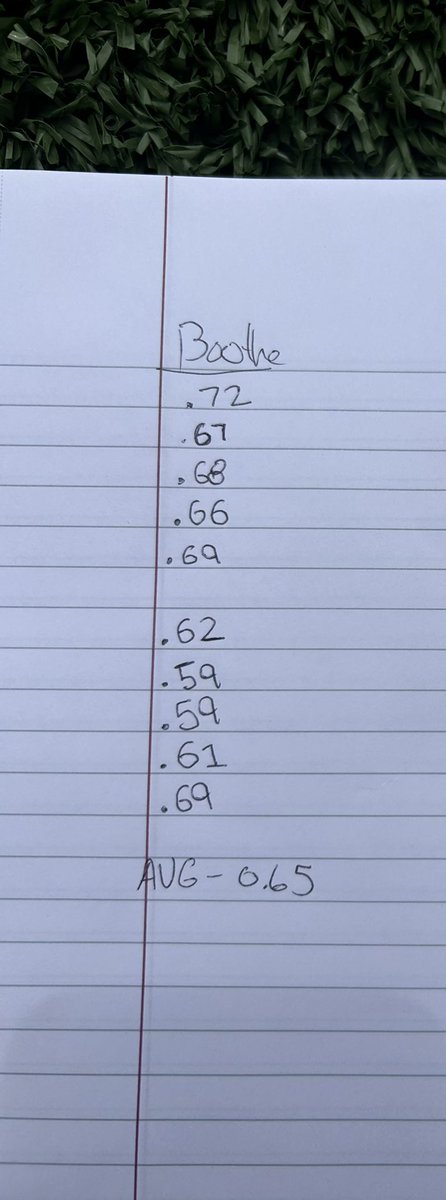 Boothe
.72
.67
.68
.66
.69
.62
.59
.59
.61
.69
AVG - 0.65